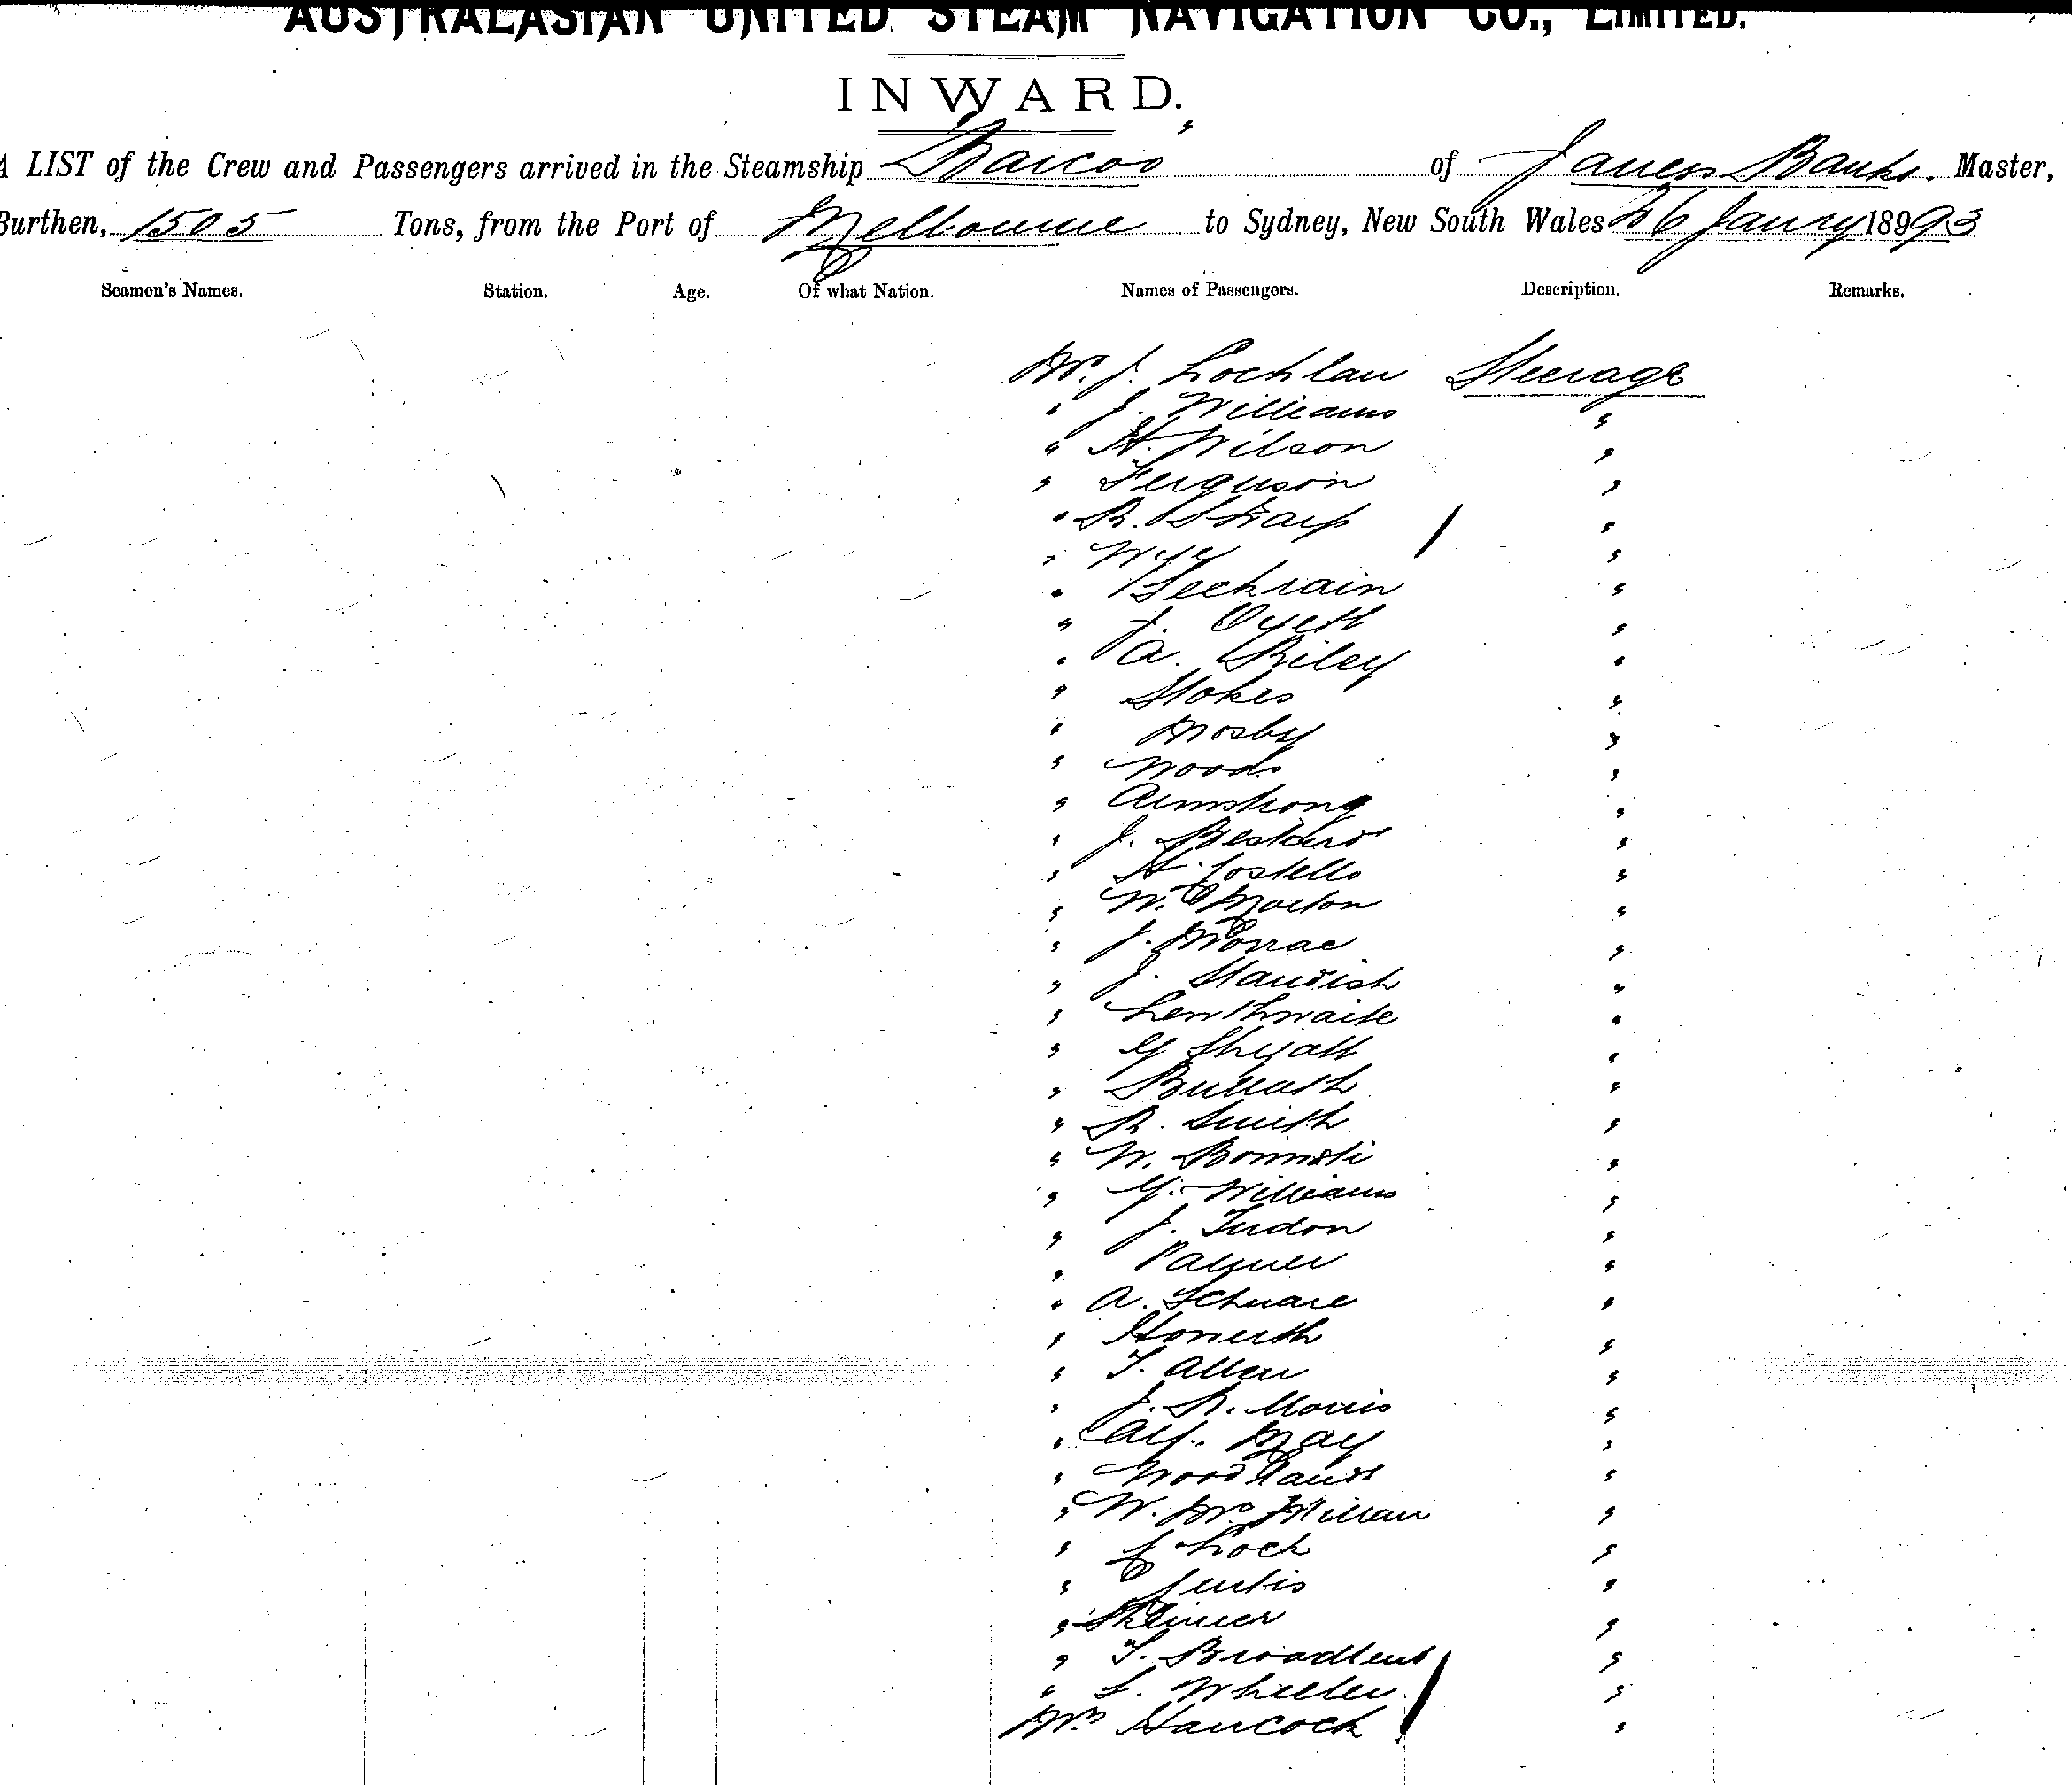 AUSTRALASIAN UNITED STEAM NAVIGATION CO., LIMITED.
INWARD.
A LIST of the Crew and Passengers arrived in the Steamship Maicoo of James Banks. Master,
Burthen, 1505 Tons, from the Port of Melbourne to Sydney, New South Wales 26 Janry 18993
Seamen's Names. Station. Age. Of what Nation. Names of Passengers. Description. Remarks.
Mr. J. Lochlan Steerage
" J. Williams "
" H. Wilson "
" Ferguson "
" R. Sharp "
" Wye "
" "
" J. "
" A. Riley "
" Stokes "
" Mosby "
" Woods "
" Armstrong "
" J. "
" H. Costello "
" W. Morton "
" J. "
" J. Standish "
" Lenthwaite "
" G "
" "
" R. Smith "
" W. "
" G. Williams "
" J. Tudon "
" Palmer "
" A. "
" Howerth "
" T. Allen "
" J. R. Morris "
" Alf. May "
" Woodlands "
" W. McMillan "
" C Loch "
" "
" Skinner "
" T. Broadbent "
" L. Wheeler "
Mrs Hancock "